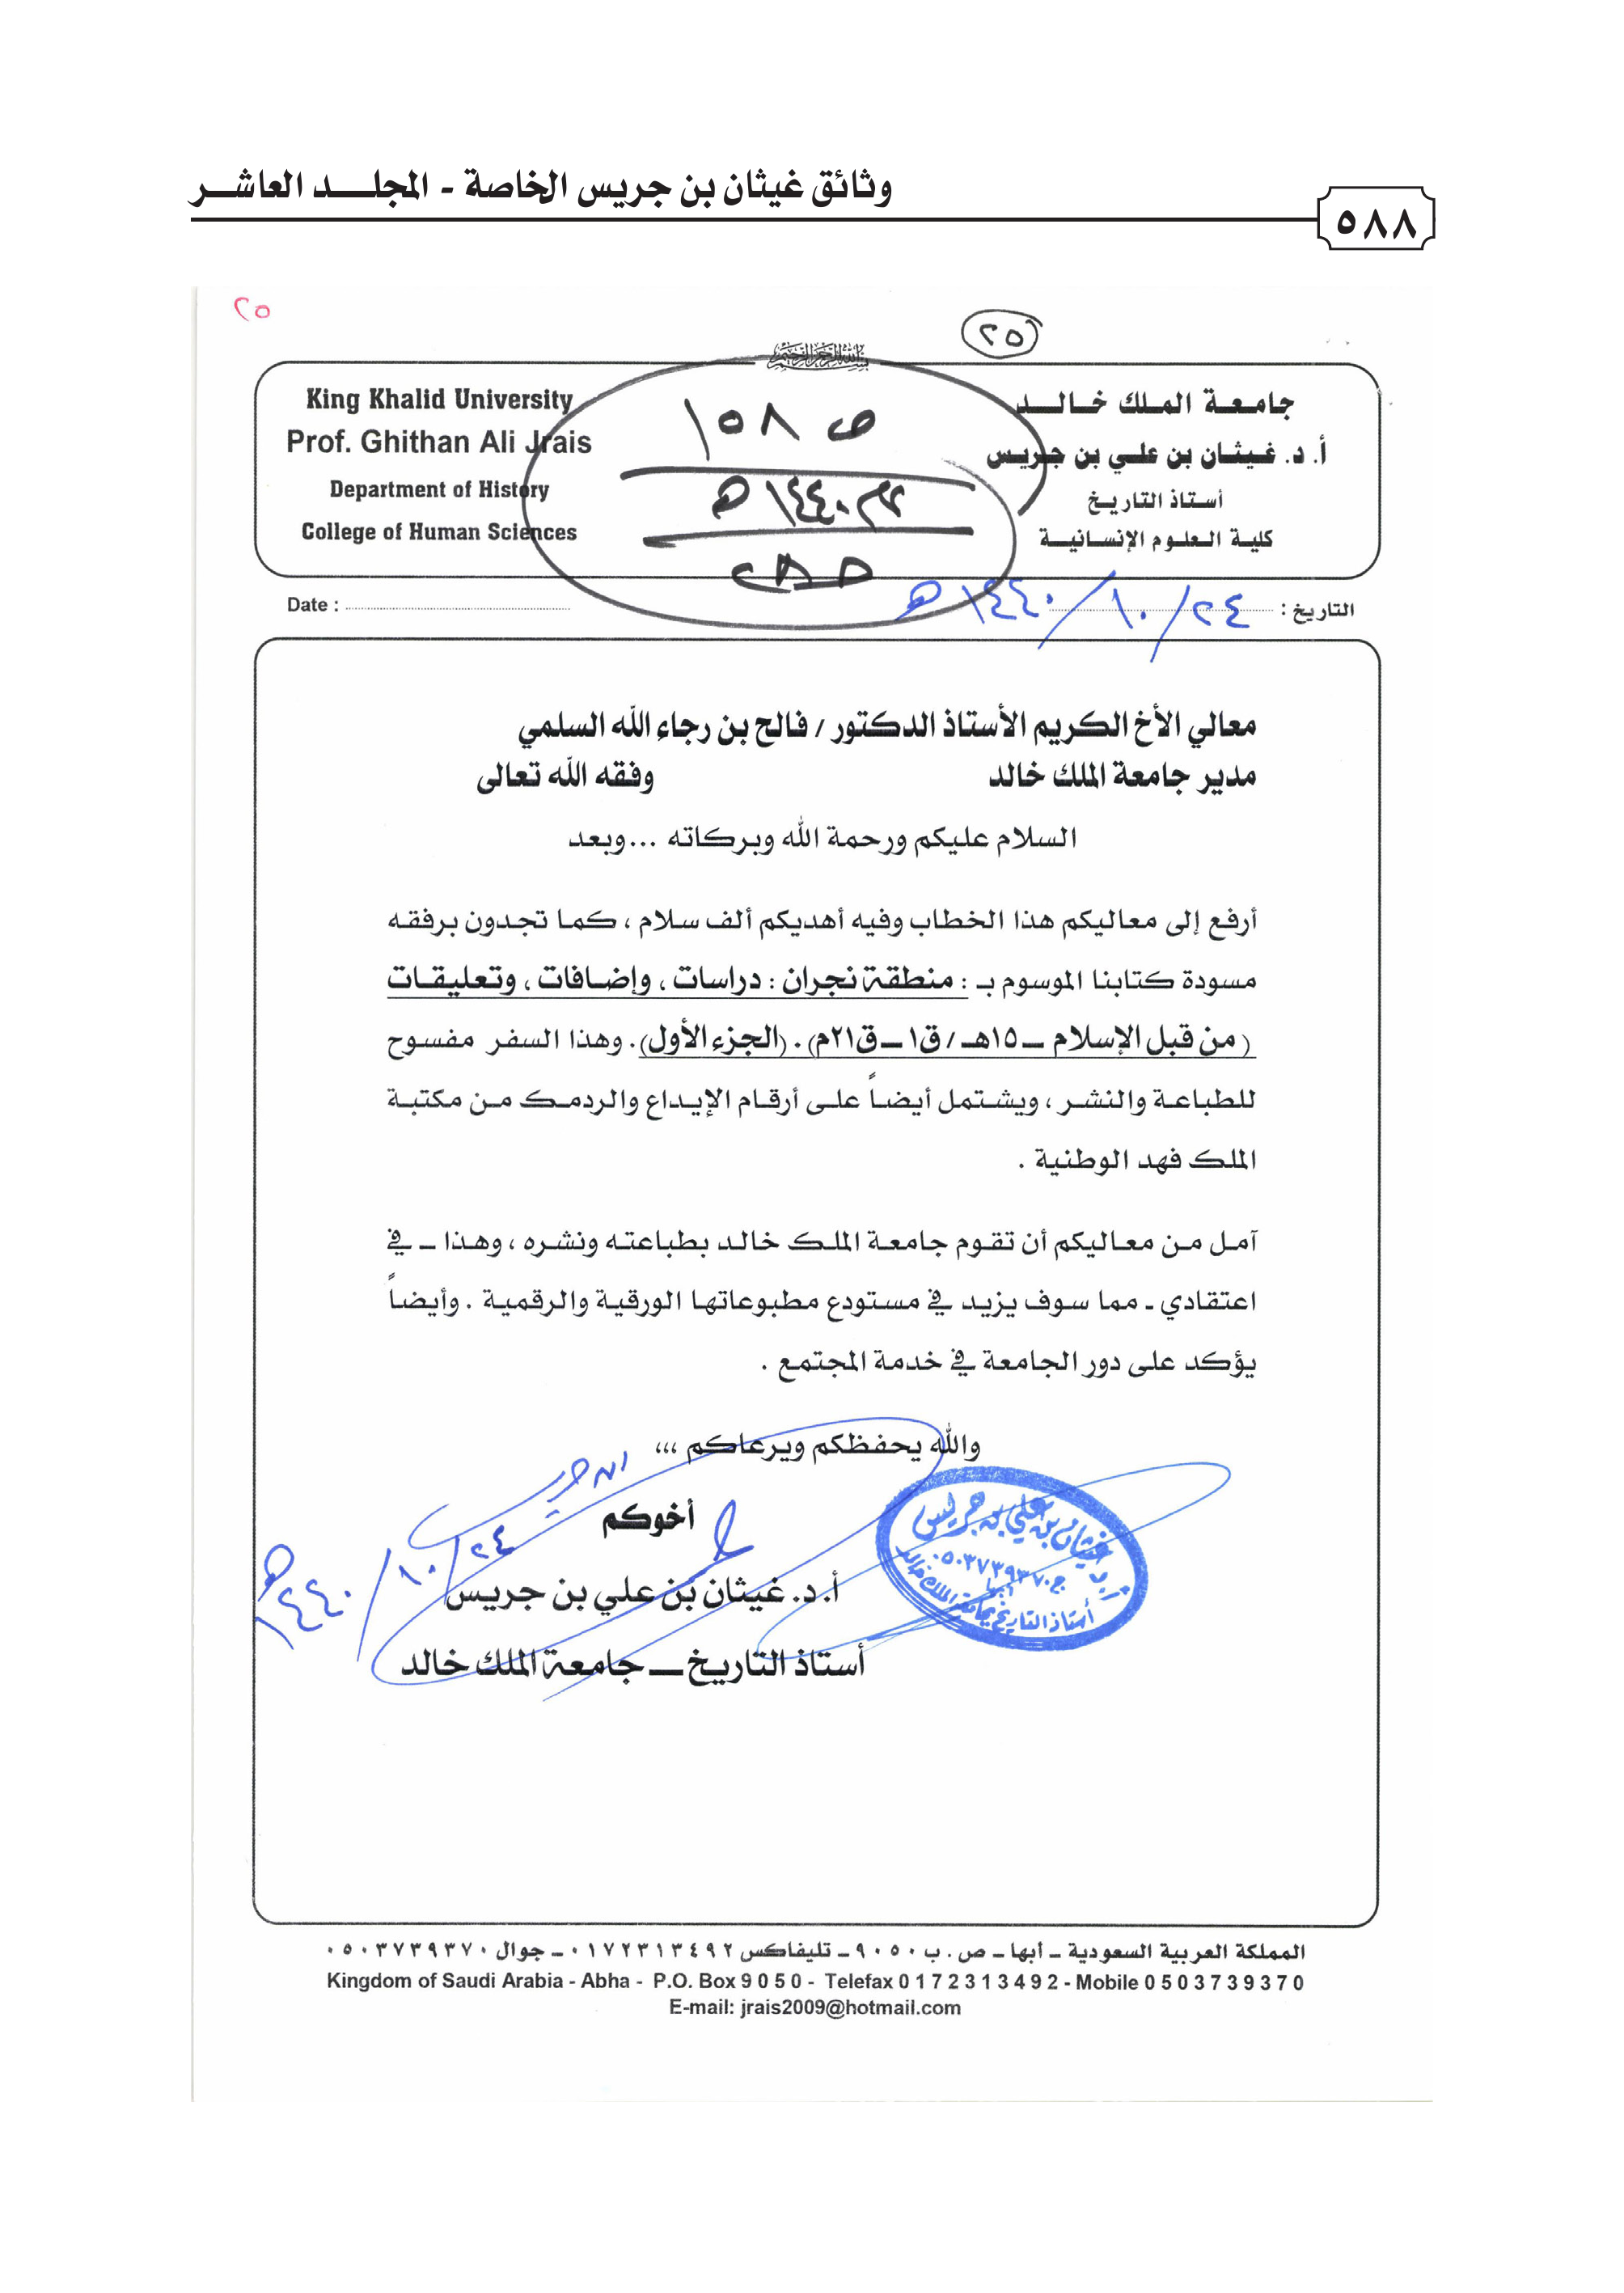 وثائق غيثان بن جريس الخاصة - المجلـــد العاشـــر
٥٨٨
٢٥
٢٥
بسم الله الرحمن الرحيم
جامـعـة المـلـك خـالـــد
أ. د. غـيـثـان بن علـي بن جريـس
أسـتـاذ التـاريـخ
كليـة العـلـوم الإنسـانيـة
King Khalid University
Prof. Ghithan Ali Jrais
Department of History
College of Human Sciences
ص ١٥٨
التاريخ : ٢٤/١٠/١٤٤٠هـ
Date :
معالي الأخ الكريم الأستاذ الدكتور / فالح بن رجاء الله السلمي
مدير جامعة الملك خالد وفقه الله تعالى
السلام عليكم ورحمة الله وبركاته ...وبعد
أرفع إلى معاليكم هذا الخطاب وفيه أهديكم ألف سلام ، كما تجدون برفقه
مسودة كتابنا الموسوم بـ : منطقة نجران : دراسات ، وإضافات ، وتعليقات
( من قبل الإسلام ــ ١٥هـ / ق١ ــ ق٢١م) . (الجزء الأول) . وهذا السفر مفسوح
للطباعة والنشر ، ويشتمل أيضاً على أرقام الإيداع والردمك من مكتبة
الملك فهد الوطنية .
آمل من معاليكم أن تقوم جامعة الملك خالد بطباعته ونشره ، وهذا ــ في
اعتقادي ـ مما سوف يزيد في مستودع مطبوعاتها الورقية والرقمية . وأيضاً
يؤكد على دور الجامعة في خدمة المجتمع .
والله يحفظكم ويرعاكم ،،،
أخوكم
أ. د. غيثان بن علي بن جريس
أستاذ التاريخ ــ جامعة الملك خالد
٢٤/١٠/١٤٤٠هـ
أ. د. غيثان بن علي بن جريس
ج ٠٥٠٣٧٣٩٣٧٠
أبها
أستاذ التاريخ بجامعة الملك خالد
المملكة العربية السعودية ــ أبها ــ ص . ب ٩٠٥٠ ــ تليفاكس ٠١٧٢٣١٣٤٩٢ ــ جوال ٠٥٠٣٧٣٩٣٧٠
Kingdom of Saudi Arabia - Abha - P.O. Box 9 0 5 0 - Telefax 0 1 7 2 3 1 3 4 9 2 - Mobile 0 5 0 3 7 3 9 3 7 0
E-mail: jrais2009@hotmail.com